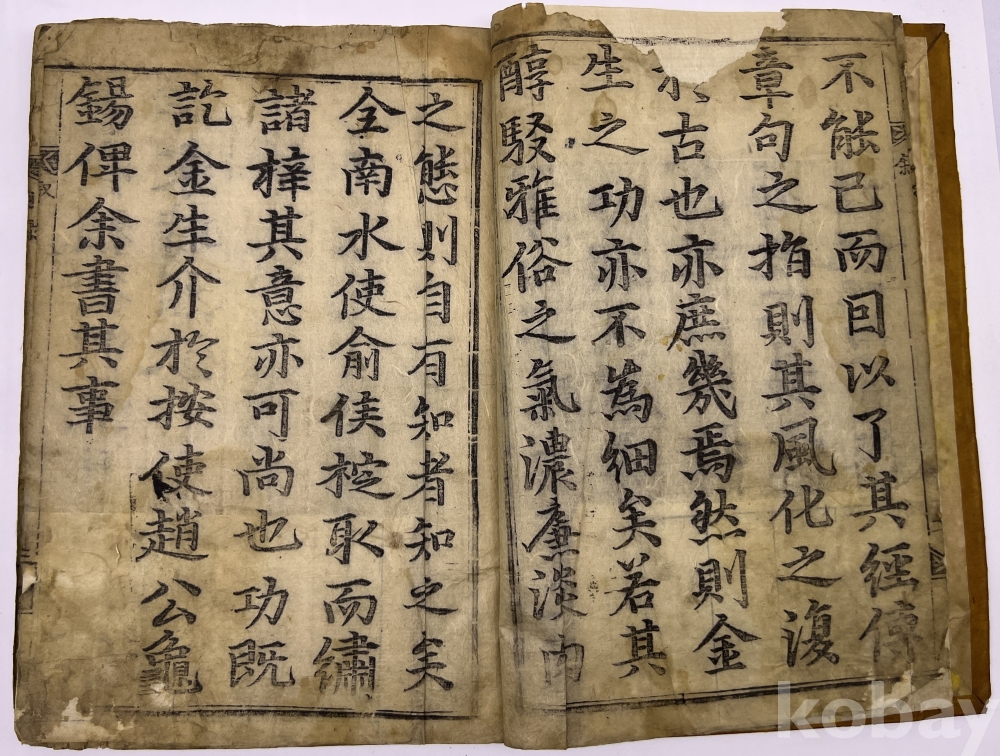 不能己而因以了其經傳
章句之指則其風化之復
於古也亦庶幾焉然則金
生之功亦不為細矣若其
醇駁雅俗之氣濃廉淡
之態則自有知者知之矣
全南水使俞侯取而繡
諸梓其意亦可尚也功既
訖金生介於按使趙公龜
錫俾余書其事
kobay